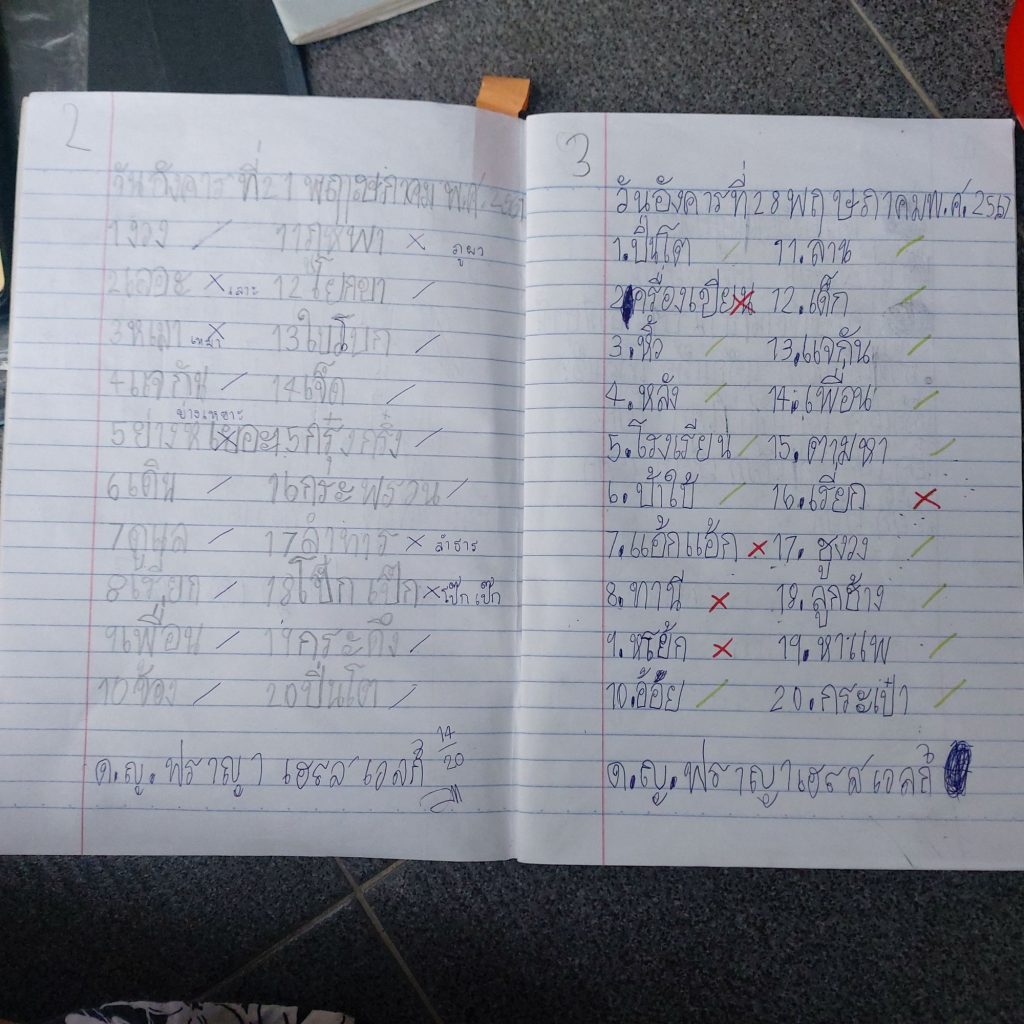 2
วันอังคาร ที่ 21 พฤษภาคม พ.ศ. 2567
1 งวง / 11 ภูหพา × ภูผา
2 เออะ × เลาะ 12 โยกยา /
3 หเมา × เหมา 13 ใบโบก /
4 แจกัน / 14 เจ็ด /
ย่างเหยาะ
5 ย่างหเยอะ 15 กรุ๋งกริ๋ง /
6 เดิน / 16 กระพรวน /
7 ดูแล / 17 ลำทาร × ลำธาร
8 เรียก / 18 โป๊ก เป๊ก × โป๊ก เป๊ก
9 เพื่อน / 19 กระดึง /
10 ช้อง / 20 ปิ่นโต /
14/20
ด.ญ. ฟราญา
3
วันอังคารที่ 28 พฤษภาคม พ.ศ. 2567
1. ปิ่นโต / 11. ลาน /
2. ครื่องเปียน × 12. เด็ก /
3. หิ้ว / 13. แจกัน /
4. หลัง / 14. เพื่อน /
5. โรงเรียน / 15. ตามหา /
6. บ้าใบ้ / 16. เรียก ×
7. แอ้กแอ้ก × 17. ชูงวง /
8. ทานี × 18. ลูกช้าง /
9. หเย้ก × 19. หาแพ /
10. อ้อย / 20. กระเป๋า /
ด.ญ. ฟราญา